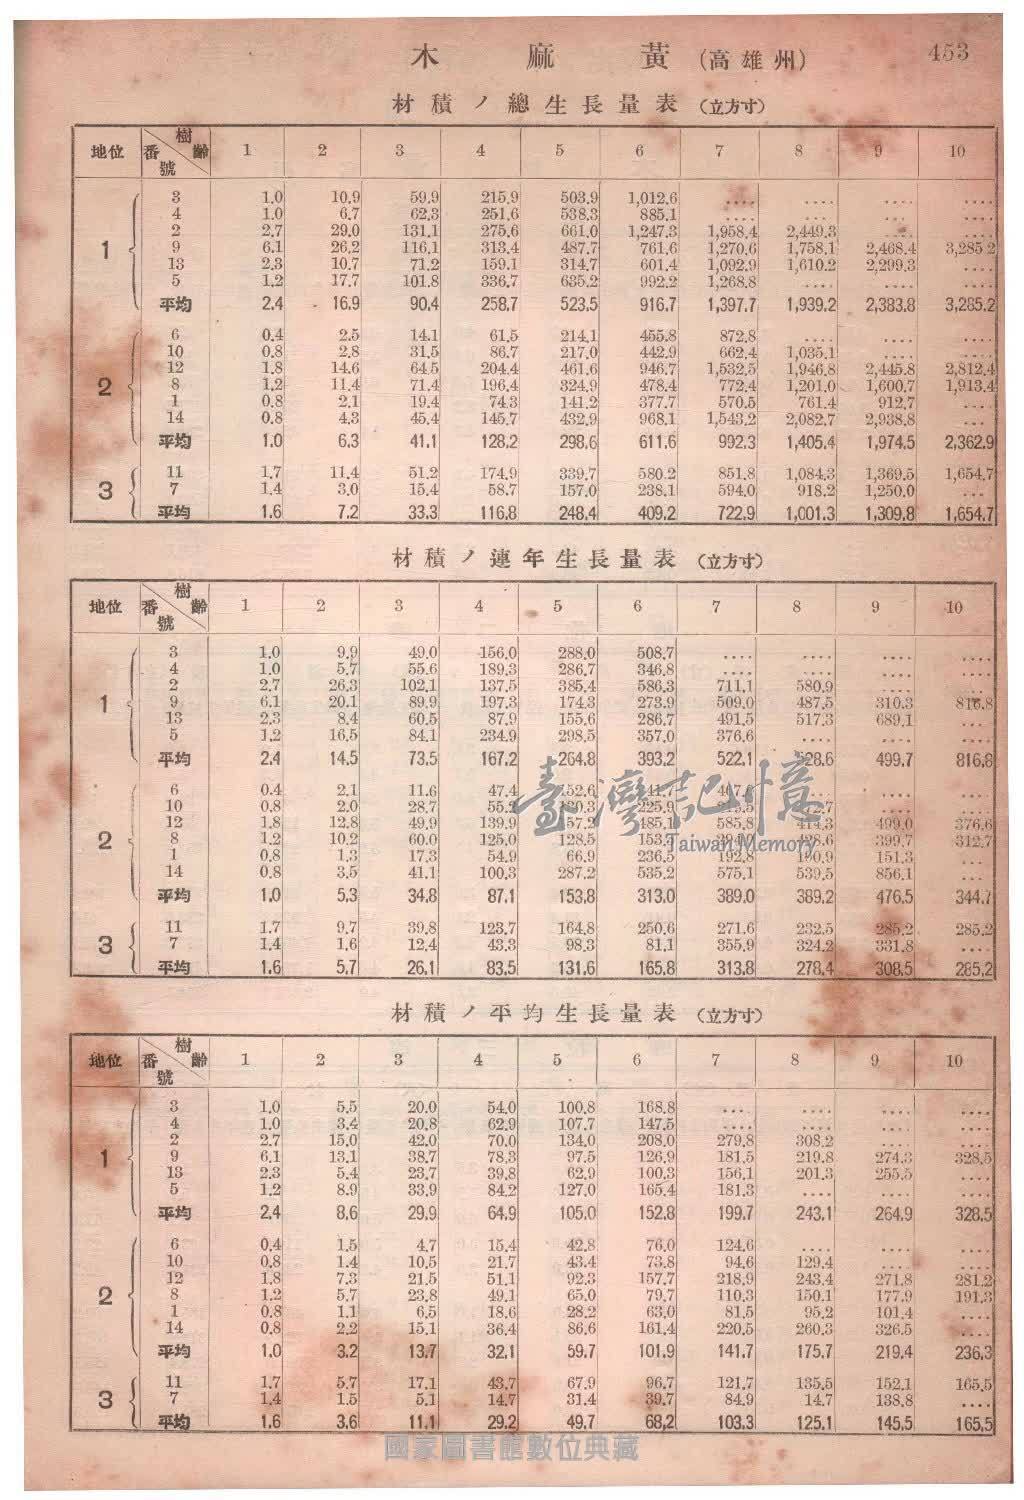 木 麻 黃 (高 雄 州)
453
材 積 ノ 總 生 長 量 表 (立方寸)
地位 番號 樹齡 1 2 3 4 5 6 7 8 9 10
1
3 1.0 10.9 59.9 215.9 503.9 1,012.6 .... .... .... ....
4 1.0 6.7 62.3 251.6 538.3 885.1 .... .... ... ....
2 2.7 29.0 131.1 275.6 661.0 1,247.3 1,958.4 2,449.3 .... ....
9 6.1 26.2 116.1 313.4 487.7 761.6 1,270.6 1,758.1 2,468.4 3,285.2
13 2.3 10.7 71.2 159.1 314.7 601.4 1,092.9 1,610.2 2,299.3 ....
5 1.2 17.7 101.8 336.7 635.2 992.2 1,268.8 .... .... ....
平均 2.4 16.9 90.4 258.7 523.5 916.7 1,397.7 1,939.2 2,383.8 3,285.2
2
6 0.4 2.5 14.1 61.5 214.1 455.8 872.8 .... .... ....
10 0.8 2.8 31.5 86.7 217.0 442.9 662.4 1,035.1 .... ....
12 1.8 14.6 64.5 204.4 461.6 946.7 1,532.5 1,946.8 2,445.8 2,812.4
8 1.2 11.4 71.4 196.4 324.9 478.4 772.4 1,201.0 1,600.7 1,913.4
1 0.8 2.1 19.4 74.3 141.2 377.7 570.5 761.4 912.7 ...
14 0.8 4.3 45.4 145.7 432.9 968.1 1,543.2 2,082.7 2,938.8 ...
平均 1.0 6.3 41.1 128.2 298.6 611.6 992.3 1,405.4 1,974.5 2,362.9
3
11 1.7 11.4 51.2 174.9 339.7 580.2 851.8 1,084.3 1,369.5 1,654.7
7 1.4 3.0 15.4 58.7 157.0 238.1 594.0 918.2 1,250.0 ...
平均 1.6 7.2 33.3 116.8 248.4 409.2 722.9 1,001.3 1,309.8 1,654.7
材 積 ノ 連 年 生 長 量 表 (立方寸)
地位 番號 樹齡 1 2 3 4 5 6 7 8 9 10
1
3 1.0 9.9 49.0 156.0 288.0 508.7 .... .... .... ....
4 1.0 5.7 55.6 189.3 286.7 346.8 .... .... .... ....
2 2.7 26.3 102.1 137.5 385.4 586.3 711.1 580.9 .... ....
9 6.1 20.1 89.9 197.3 174.3 273.9 509.0 487.5 310.3 816.8
13 2.3 8.4 60.5 87.9 155.6 286.7 491.5 517.3 689.1 ...
5 1.2 16.5 84.1 234.9 298.5 357.0 376.6 .... .... ....
平均 2.4 14.5 73.5 167.2 264.8 393.2 522.1 528.6 499.7 816.8
2
6 0.4 2.1 11.6 47.4 152.6 .... .... ....
10 0.8 2.0 28.7 55.2 225.9 .... ....
12 1.8 12.8 49.9 139.9 485.1 585.8 414.3 499.0 376.6
8 1.2 10.2 60.0 125.0 128.5 399.7 312.7
1 0.8 1.3 17.3 54.9 66.9 236.5 192.8 190.9 151.3 ...
14 0.8 3.5 41.1 100.3 287.2 535.2 575.1 539.5 856.1 ...
平均 1.0 5.3 34.8 87.1 153.8 313.0 389.0 389.2 476.5 344.7
3
11 1.7 9.7 39.8 123.7 164.8 250.6 271.6 232.5 285.2 285.2
7 1.4 1.6 12.4 43.3 98.3 81.1 355.9 324.2 331.8 ....
平均 1.6 5.7 26.1 83.5 131.6 165.8 313.8 278.4 308.5 285.2
材 積 ノ 平 均 生 長 量 表 (立方寸)
地位 番號 樹齡 1 2 3 4 5 6 7 8 9 10
1
3 1.0 5.5 20.0 54.0 100.8 168.8 .... .... .... ....
4 1.0 3.4 20.8 62.9 107.7 147.5 .... .... .... ....
2 2.7 15.0 42.0 70.0 134.0 208.0 279.8 308.2 .... ....
9 6.1 13.1 38.7 78.3 97.5 126.9 181.5 219.8 274.3 328.5
13 2.3 5.4 23.7 39.8 62.9 100.3 156.1 201.3 255.5 ....
5 1.2 8.9 33.9 84.2 127.0 165.4 181.3 .... .... ....
平均 2.4 8.6 29.9 64.9 105.0 152.8 199.7 243.1 264.9 328.5
2
6 0.4 1.5 4.7 15.4 42.8 76.0 124.6 .... .... ....
10 0.8 1.4 10.5 21.7 43.4 73.8 94.6 129.4 .... ....
12 1.8 7.3 21.5 51.1 92.3 157.7 218.9 243.4 271.8 281.2
8 1.2 5.7 23.8 49.1 65.0 79.7 110.3 150.1 177.9 191.3
1 0.8 1.1 6.5 18.6 28.2 63.0 81.5 95.2 101.4 ....
14 0.8 2.2 15.1 36.4 86.6 161.4 220.5 260.3 326.5 ....
平均 1.0 3.2 13.7 32.1 59.7 101.9 141.7 175.7 219.4 236.3
3
11 1.7 5.7 17.1 43.7 67.9 96.7 121.7 135.5 152.1 165.5
7 1.4 1.5 5.1 14.7 31.4 39.7 84.9 14.7 138.8 ....
平均 1.6 3.6 11.1 29.2 49.7 68.2 103.3 125.1 145.5 165.5
臺灣記憶
Taiwan Memory
國家圖書館數位典藏